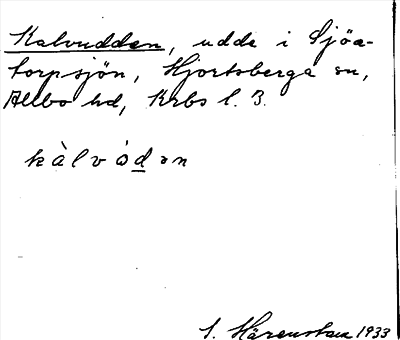 Kalvudden, udde i Sjöa-
torpsjön, Hjortsberga sn,
Allbo hd, Krbs l. B.
kàlvȯ́dən
S. Härenstam 1933